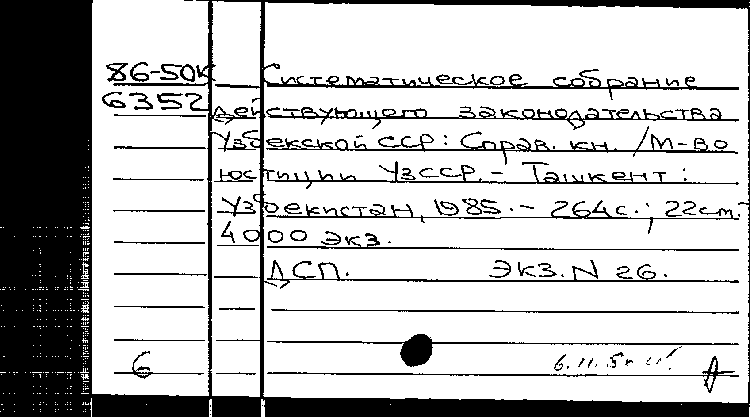 86-50к Систематическое собрание
6352 действующего законодательства
Узбекской ССР: Справ. кн. /М-во
юстиции УзССР. - Ташкент:
Узбекистан, 1985. - 264с.; 22см. -
4000 экз.
ДСП. Экз. N 26.
6